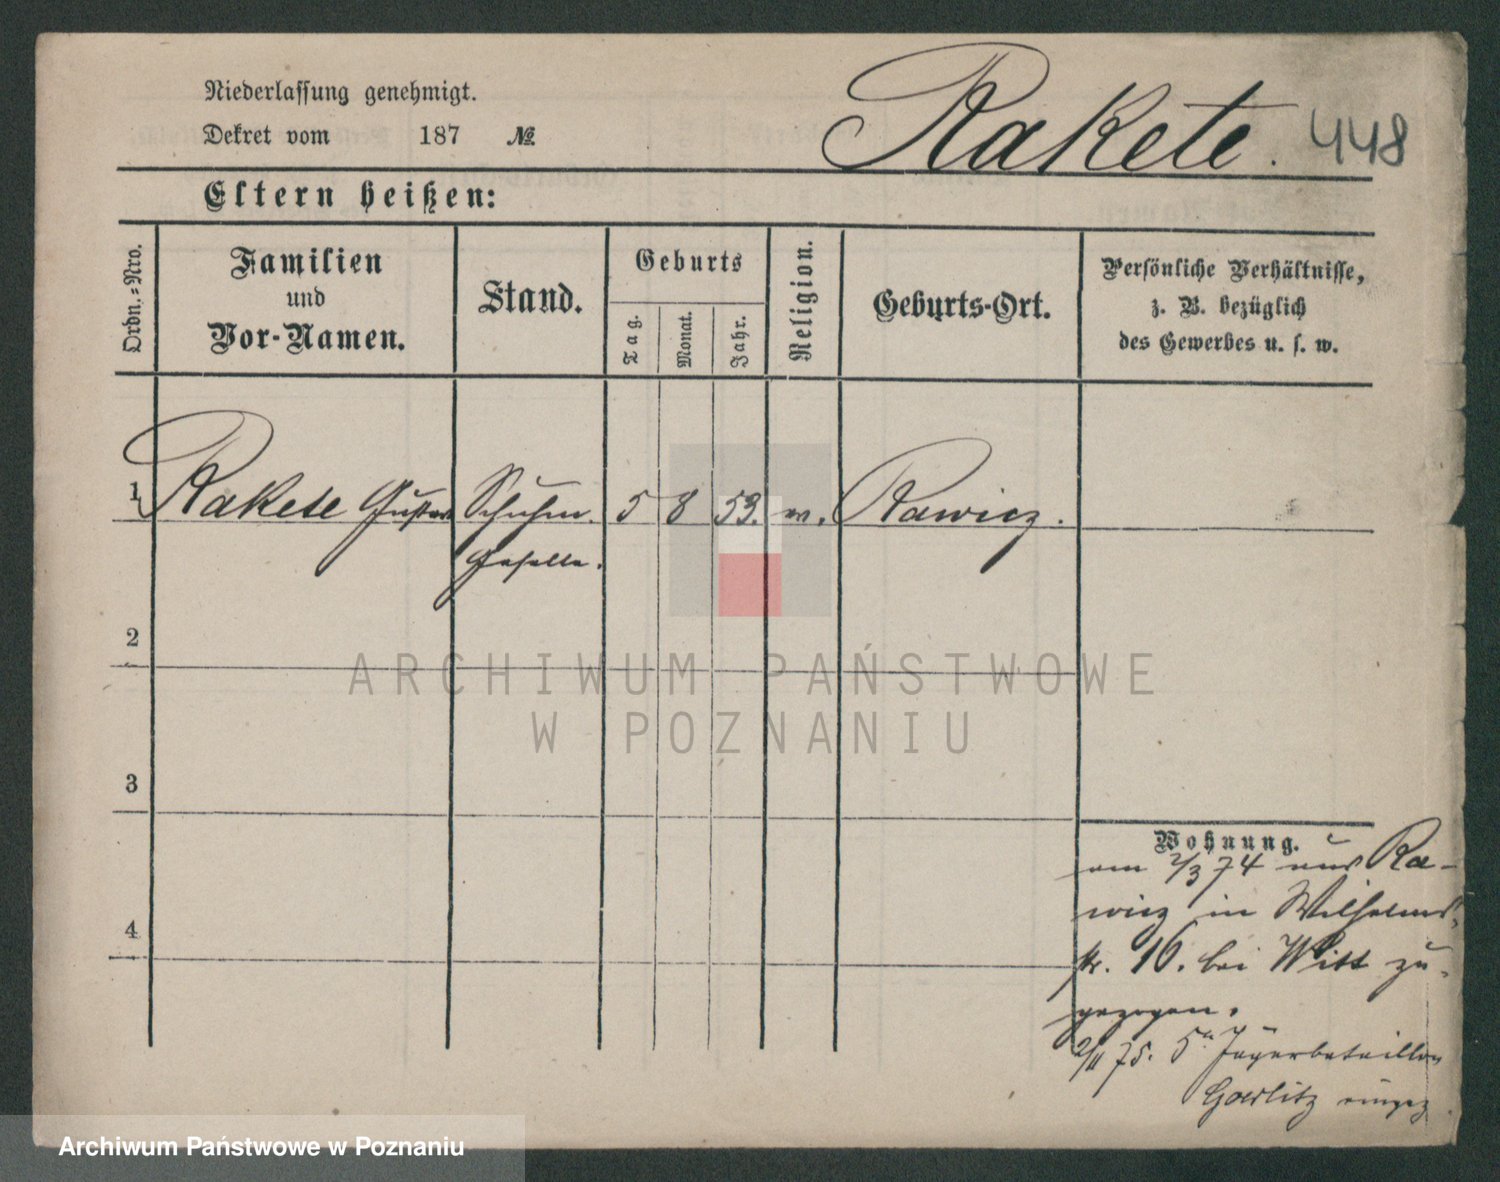 Niederlassung genehmigt.
Dekret vom 187 №
Rakete. 448
Eltern heißen:
Ordn.-Nro.
Familien
und
Vor-Namen.
Stand.
Geburts
Tag.
Monat.
Jahr.
Religion.
Geburts-Ort.
Persönliche Verhältnisse,
z. B. bezüglich
des Gewerbes u. s. w.
1 Rakete Gustav Schuhm. 5 8 53. ev. Rawicz.
Geselle.
2
3
4
Wohnung.
am 2/3 74 aus Ra-
wicz in Wilhelms-
str. 16. bei Witt zu-
gezogen.
2/11 75. 5t Jägerbataillon
Goerlitz eingez.
ARCHIWUM PAŃSTWOWE
W POZNANIU
Archiwum Państwowe w Poznaniu